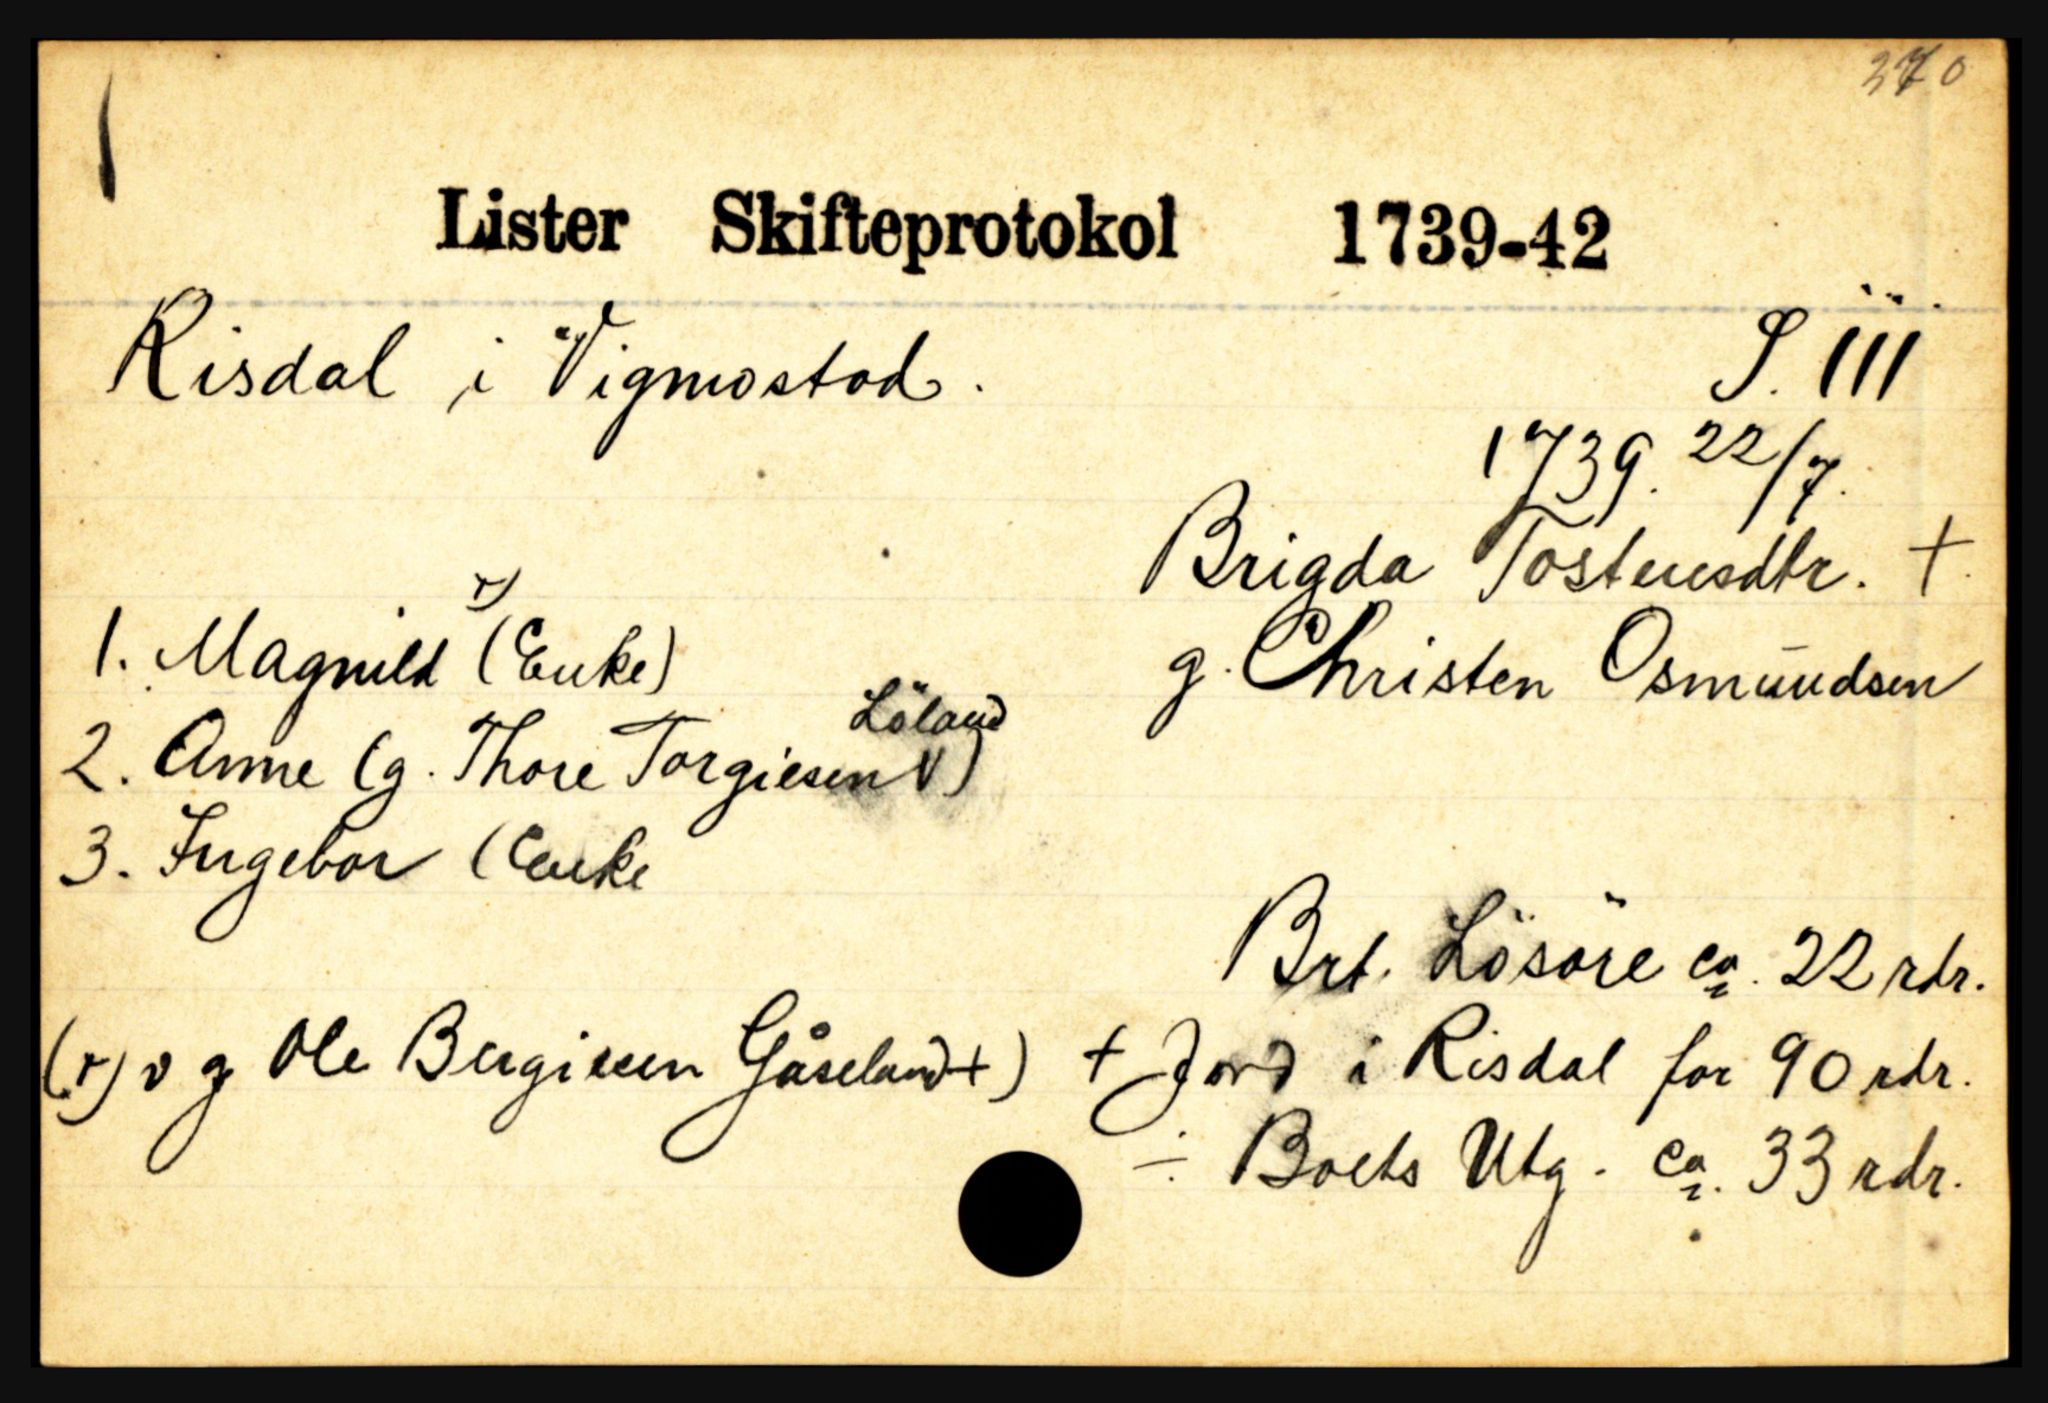 270
Lister Skifteprotokol 1739-42
Risdal i Vigmostad.
S. 111
1739. 22/7.
Brigda Tostensdtr. +
g. Christen Osmundsen
1. Magnild (Enke) x)
2. Anne (g. Thore Torgiesen Löland V)
3. Ingebor (Enke
Brt. Lösöre ca. 22 rdr.
+ Jord i Risdal for 90 rdr.
÷ Boets Utg. ca. 33 rdr.
(x) v g Ole Bergiesen Gåseland +)